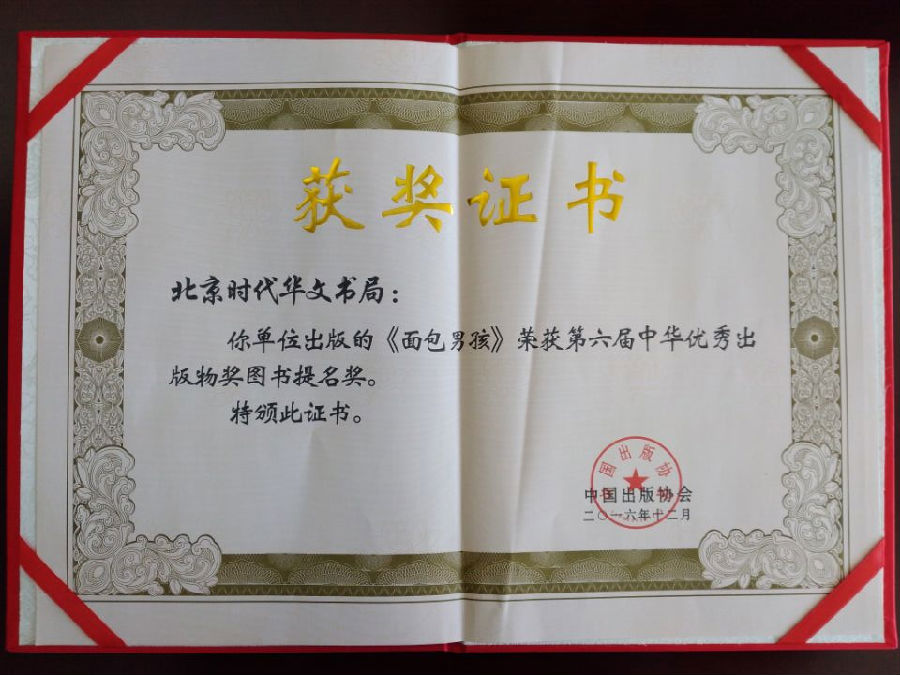 获奖证书
北京时代华文书局：
你单位出版的《面包男孩》荣获第六届中华优秀出
版物奖图书提名奖。
特颁此证书。
中国出版协会
中国出版协会
二〇一六年十二月